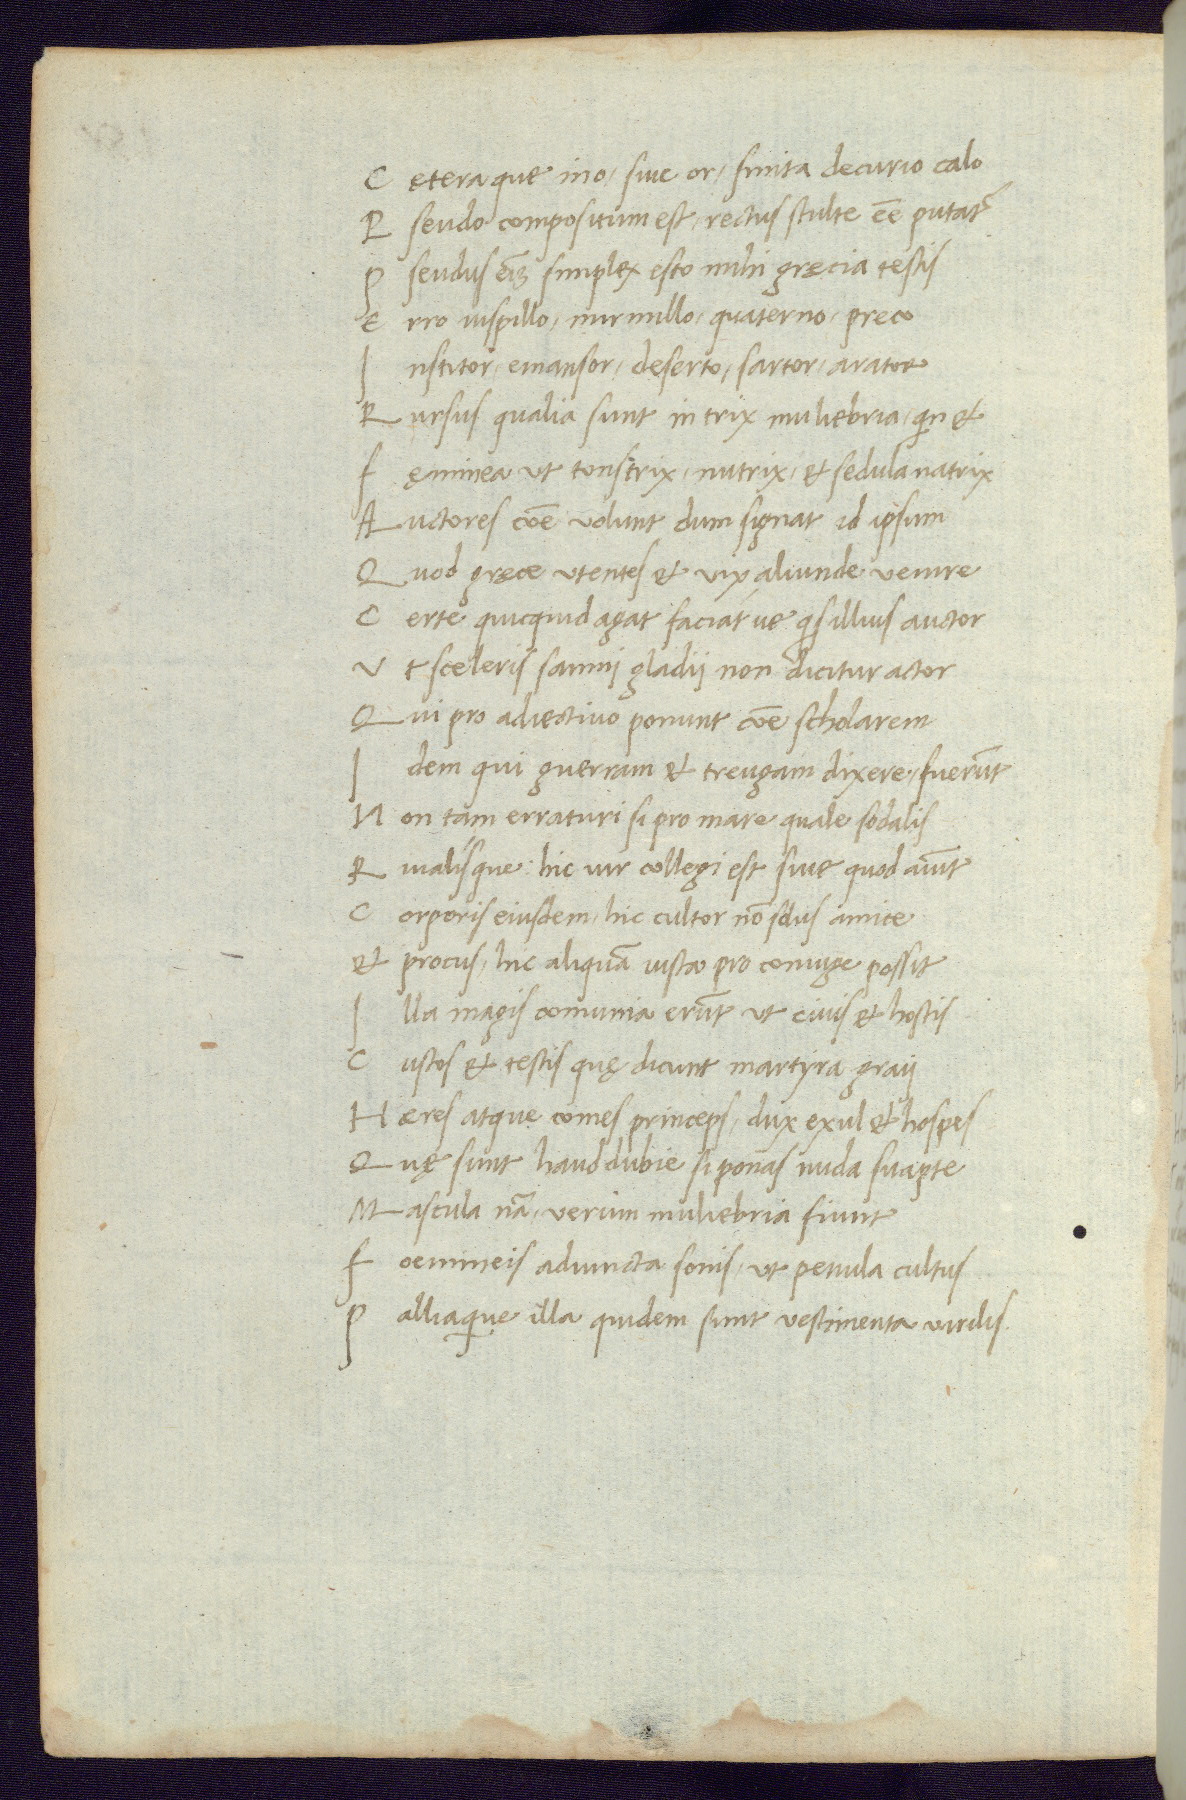 C eteraque in o, siue or, finita decurio calo
P seudo compositum est, rectus stulte eē putat᷑
P seudus eīz simplex esto mihi grecia testis
E rro uispillo, mirmillo, quaterno, preco
I nstitor, emansor, desertor, sartor, arator
R ursus qualia sunt in trix muliebria, qin et
F ęminea ut tonstrix, nutrix, et sedula natrix
A uctores coē uolunt dum signat id ipsum
Q uod grece utentes et uix aliunde uenire
C erte quicquid agat faciat ue qs illius auctor
V t sceleris samnij gladij non dicitur actor
Q ui pro adiectiuo ponunt coē scholarem
I dem qui guerram et treugam dixere, fuerūt
N on tam erraturi si pro mare quale sodalis
R iualisque hic uir collegi est siue quod aiūt
C orporis eiusdem, hic cultor nō sdus amice
et procus, hic aliquā iusta pro coniuge possit
I lla magis comunia erūt ut ciuis et hostis
C ustos et testis quę dicunt martyra graij
H æres atque comes princeps, dux exul et hospes
Q uę sunt haud dubie si ponas nuda suapte
M ascula nā, uerum muliebria fiunt
F oemineis adiuncta sonis, ut penula cultus
P alliaque illa quidem sunt uestimenta uirilis